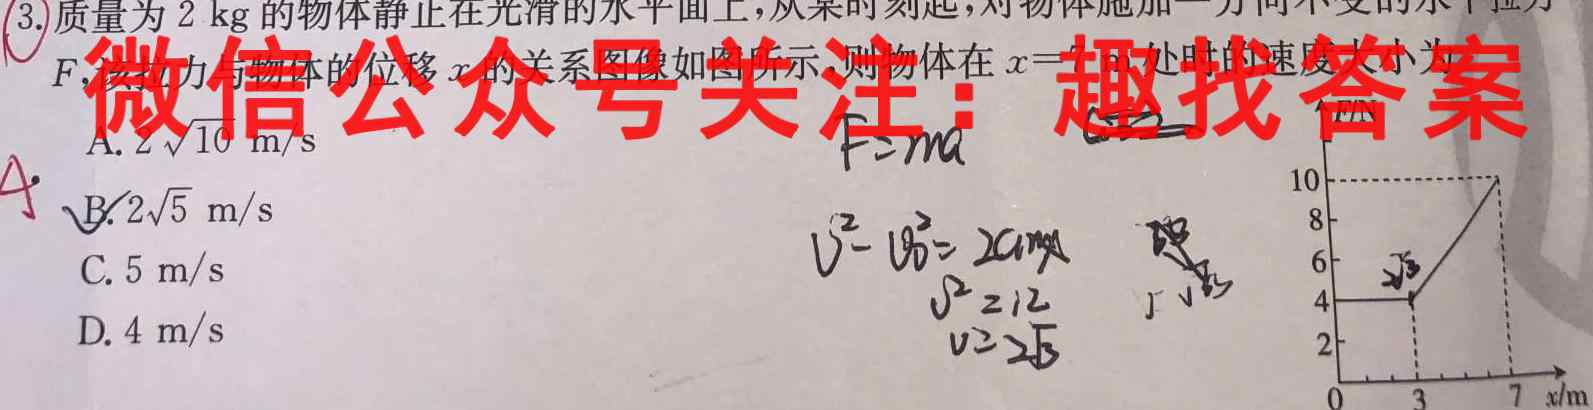 3.质量为 2 kg 的物体静止在光滑的水平面上,从某时刻起,对物体施加一方向不变的水平拉力
F,该拉力与物体的位移 x 的关系图像如图所示,则物体在 x=7 m 处时的速度大小为
微信公众号关注：趣找答案
A. 2√10 m/s
F=ma
F/N
A.
B. 2√5 m/s
10
8
C. 5 m/s
6
2√3
v²=12
4
D. 4 m/s
v=2√3
2
0 3 7 x/m